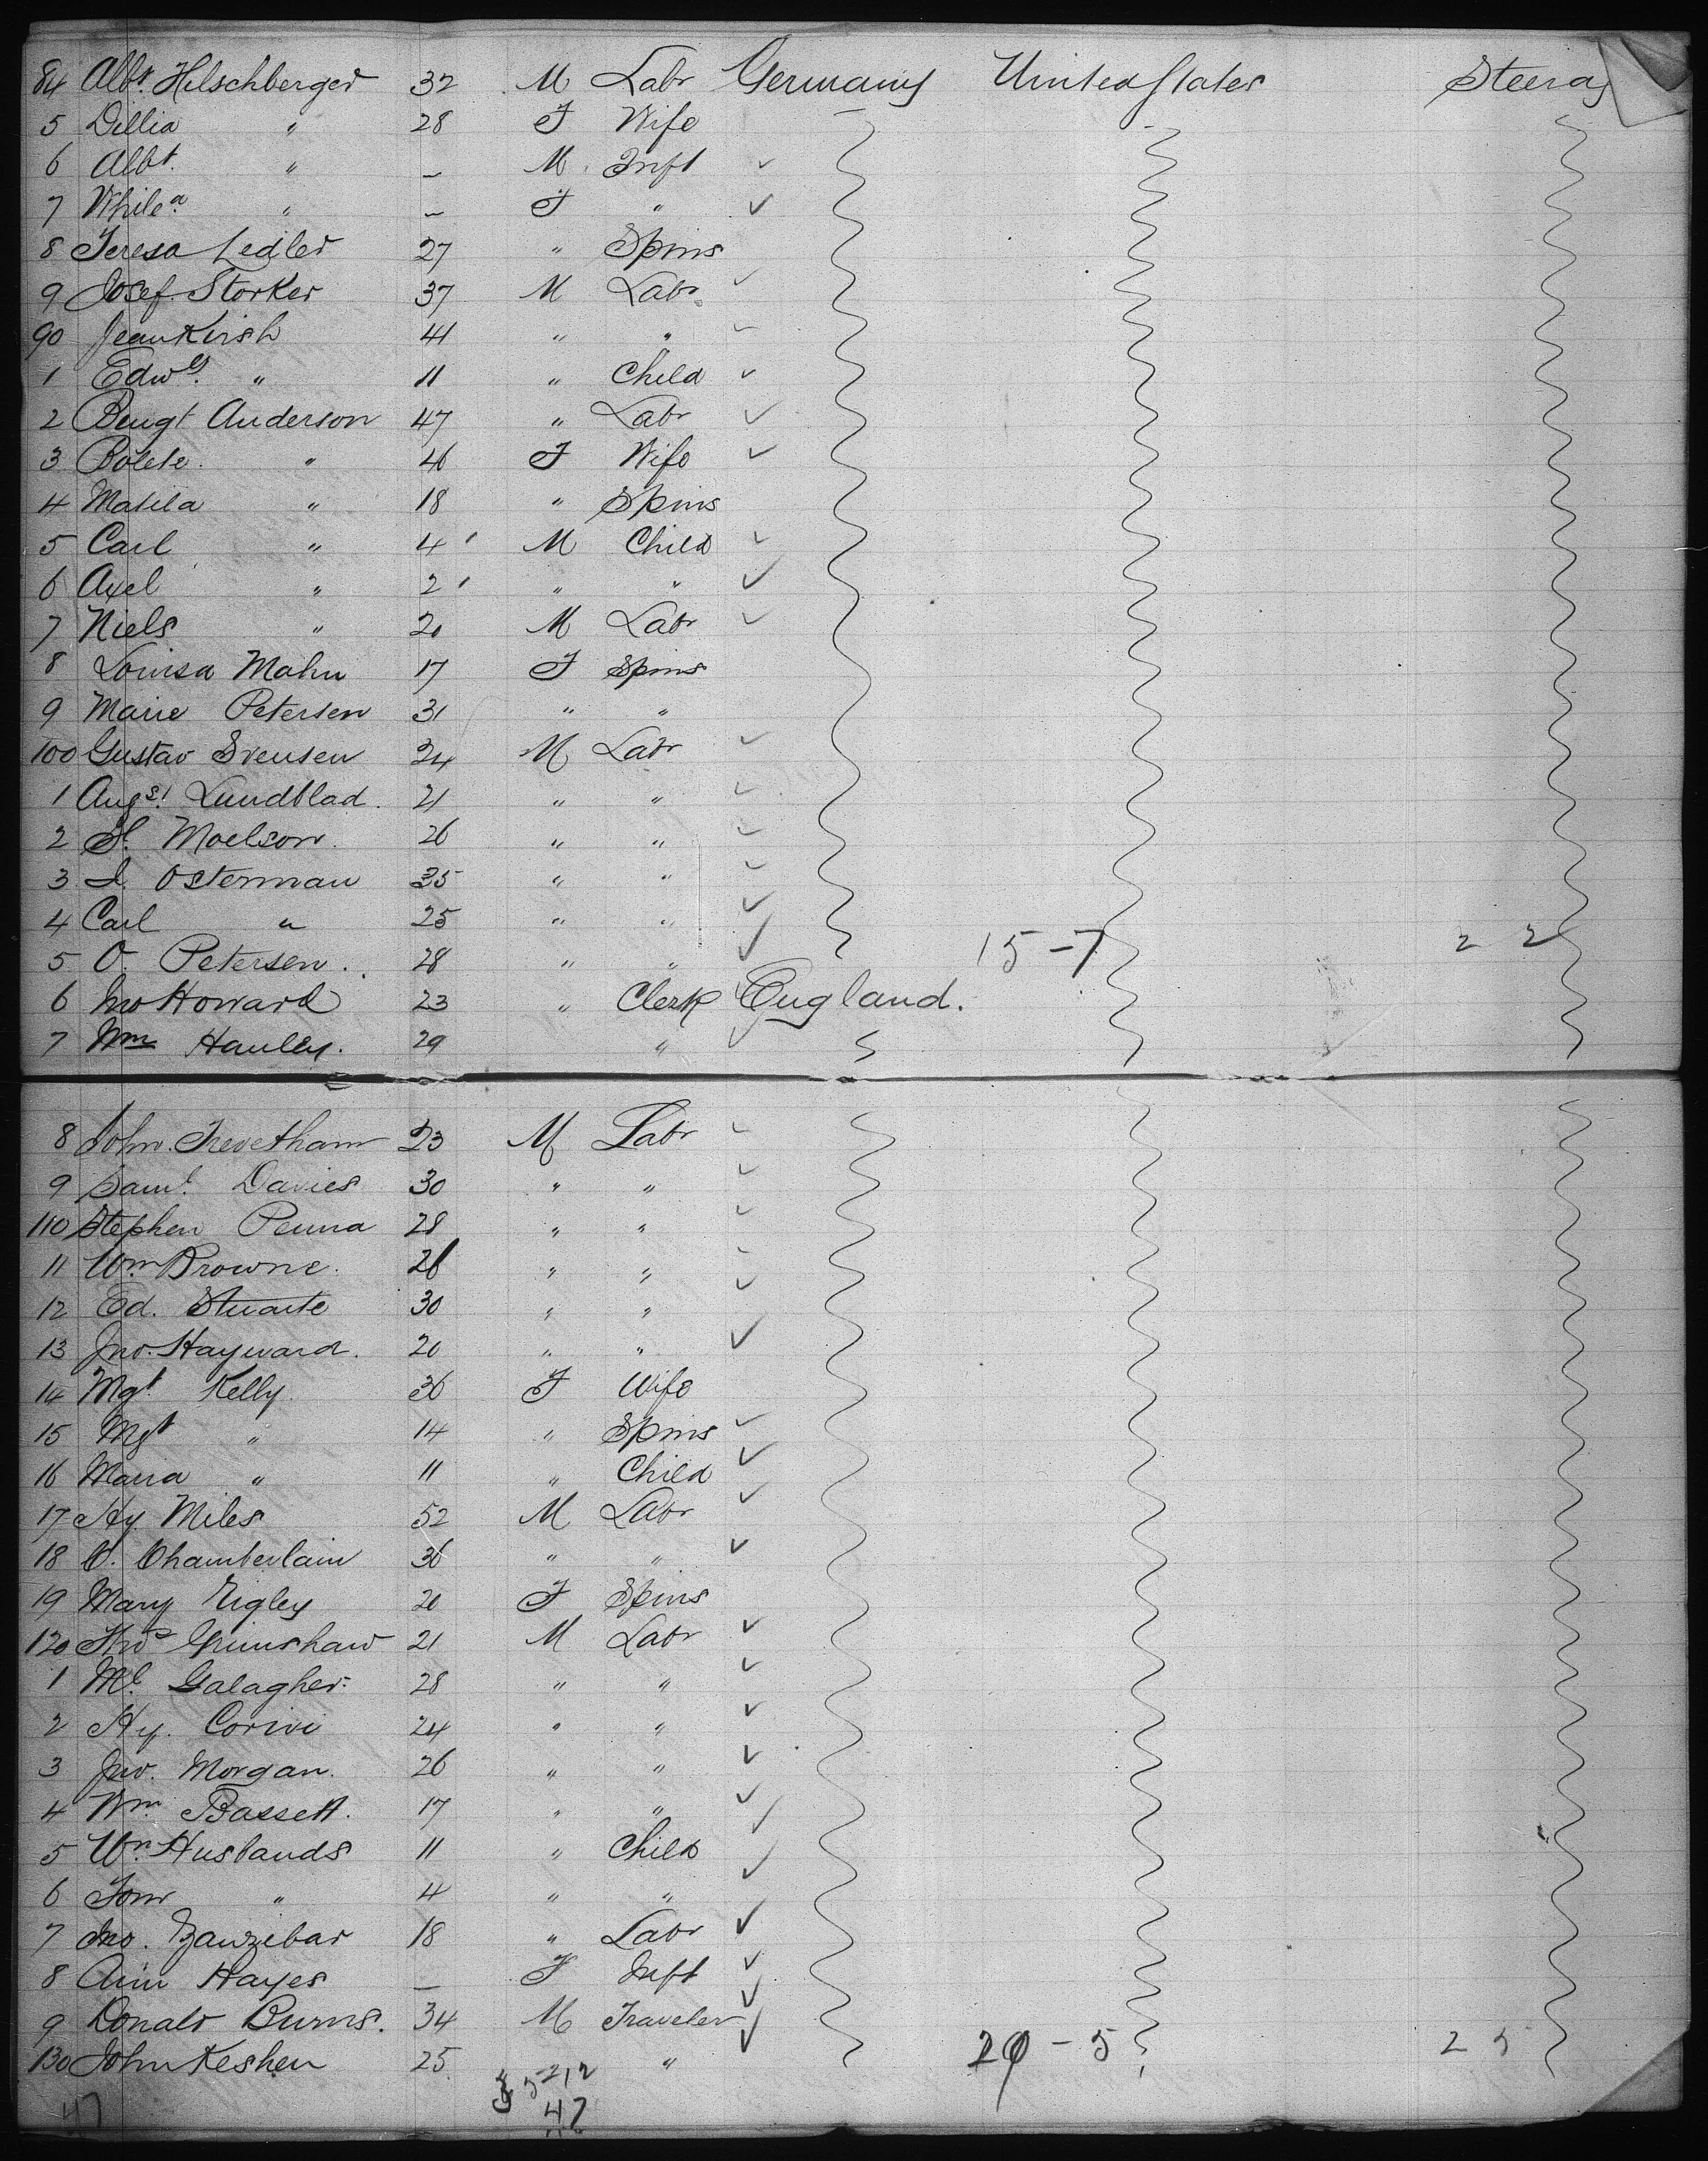 84 Albt. Hilschberger 32 M Labr Germany United States Steerag
5 Dillia " 28 F Wife
6 Albt. " – M Inft
7 While a " – F "
8 Teresa Ledler 27 " Spins
9 Josef Storker 37 M Labr
90 Jean Kirsh 41 " "
1 Edwd. " 11 " Child
2 Bengt Anderson 47 " Labr
3 Bolete. " 46 F Wife
4 Matila " 18 " Spins
5 Carl " 4 M Child
6 Axel " 2 " "
7 Niels " 20 M Labr
8 Louisa Mahn 17 F Spins
9 Marie Petersen 31 " "
100 Gustav Svensen 24 M Labr
1 Augst. Lundblad. 21 " "
2 S. Moelson. 26 " "
3 I. Osterman 35 " "
4 Carl " 25 " "
5 O. Petersen. 28 " " 15 – 7 2 2
6 Jno Howard 23 " Clerk England.
7 Wm Hanley. 29 "
8 John. Trevetham 23 M Labr
9 Saml. Davies 30 " "
110 Stephen Penna 28 " "
11 Wm Browne. 26 " "
12 Ed. Stuarte 30 " "
13 Jno. Hayward. 20 " "
14 Mgt Kelly. 36 F Wife
15 Mgt " 14 " Spins
16 Maria " 11 " Child
17 Hy Miles 52 M Labr
18 C. Chamberlain 36 " "
19 Mary Rigley 20 F Spins
120 Thos Grimshaw 21 M Labr
1 Ml. Galagher. 28 " "
2 Hy. Corivi 24 " "
3 Jno. Morgan. 26 " "
4 Wm. Bassett. 17 " "
5 Wm Husbands 11 " Child
6 Tom " 4 " "
7 Jno. Zanzibar 18 " Labr
8 Ann Hayes – F Inft
9 Donald Burns. 34 M Traveler
130 John Keshen 25 " 20 – 5 2 5
5 212
47 47